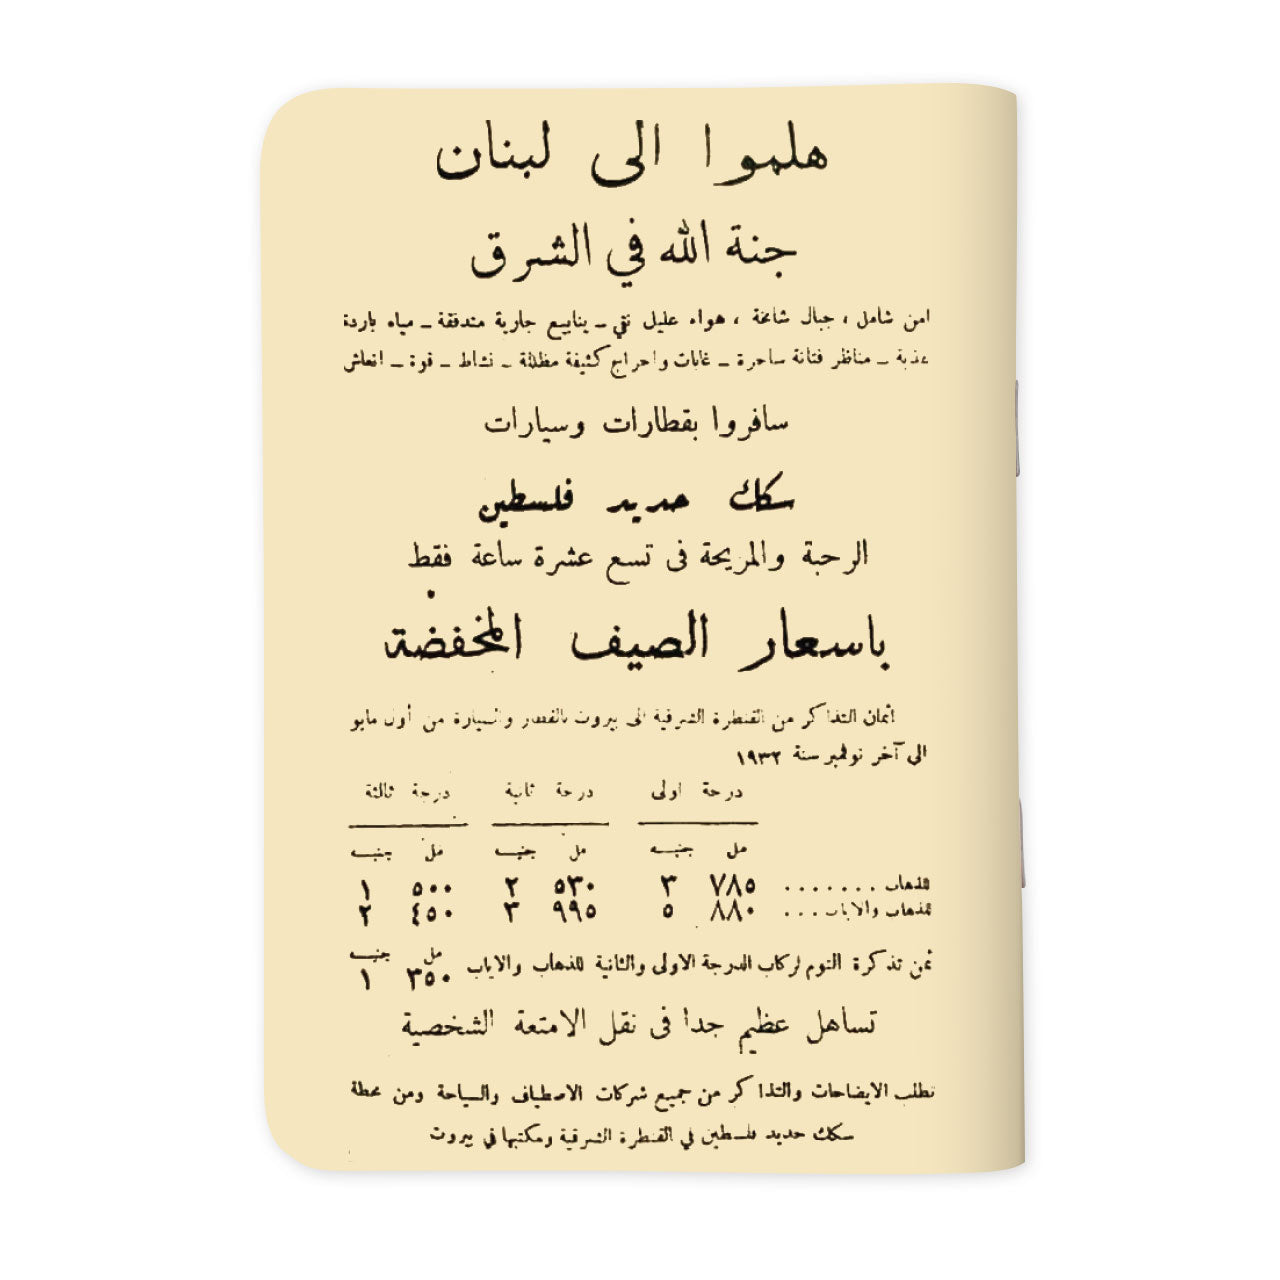 هلموا الى لبنان
جنة الله في الشرق
امن شامل ، جبال شامخة ، هواء عليل نقي ــ ينابيع جارية متدفقة ــ مياه باردة
عذبة ــ مناظر فتانة ساحرة ــ غابات واحراج كثيفة مظللة ــ نشاط ــ قوة ــ انعاش
سافروا بقطارات وسيارات
سكك حديد فلسطين
الرحبة والمريحة فى تسع عشرة ساعة فقط
باسعار الصيف المخفضة
أثمان التذاكر من القنطرة الشرقية الى بيروت بالقطار والسيارة من أول مايو
الى آخر نوفمبر سنة ١٩٣٢
درجة اولى درجة ثانية درجة ثالثة
مل جنيه مل جنيه مل جنيه
للذهاب . . . . . . . ٧٨٥ ٣ ٥٣٠ ٢ ٥٠٠ ١
للذهاب والاياب . . . ٨٨٠ ٥ ٩٩٥ ٣ ٤٥٠ ٢
مل جنيه
ثمن تذكرة النوم لركاب الدرجة الاولى والثانية للذهاب والاياب ٣٥٠ ١
تساهل عظيم جدا فى نقل الامتعة الشخصية
تطلب الايضاحات والتذاكر من جميع شركات الاصطياف والسياحة ومن محطة
سكك حديد فلسطين في القنطرة الشرقية ومكتبها في بيروت